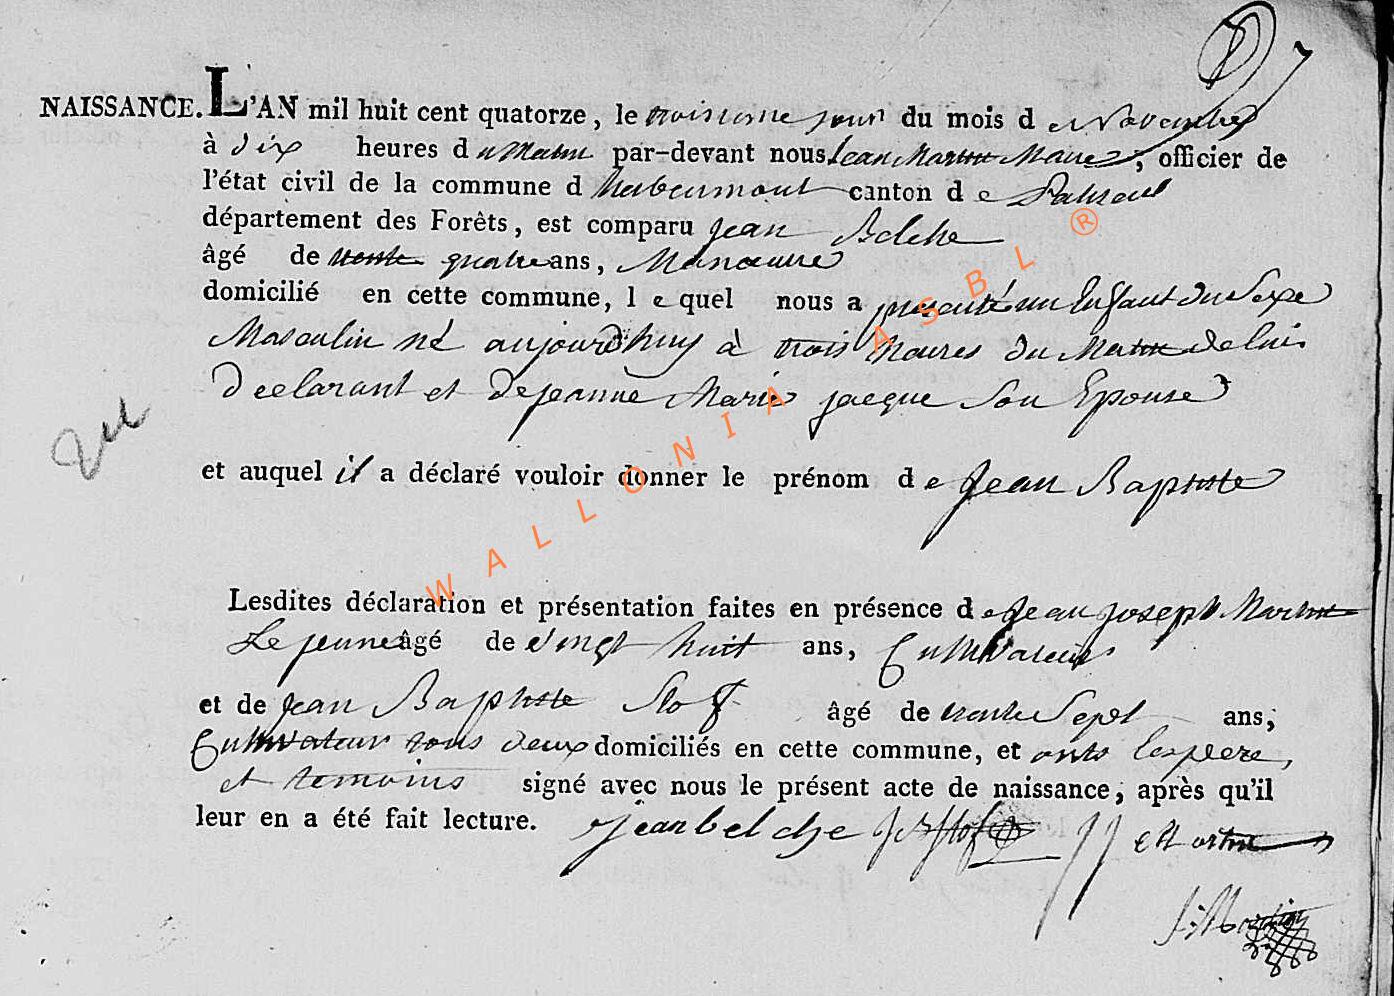 7
NAISSANCE. L'AN mil huit cent quatorze, le troisieme jour du mois de Novembre
à dix heures du Matin par-devant nous Jean Martin Maire, officier de
l'état civil de la commune d'habaimont canton de
département des Forêts, est comparu Jean Belche
âgé de trente quatre ans, Manoeuvre
domicilié en cette commune, lequel nous a presenté un Enfant du Sexe
Masculin né aujourdhuy à trois heures du Matin de luis
Declarant et de jeanne Marie jacque Son Epouse
et auquel il a déclaré vouloir donner le prénom de Jean Baptiste
Lesdites déclaration et présentation faites en présence de Jean joseph Martin
Le jeune âgé de vingt huit ans, Cultivateur
et de Jean Baptiste Slof âgé de trente Sept ans,
Cultivateur tous deux domiciliés en cette commune, et onts les pere,
et temoins signé avec nous le présent acte de naissance, après qu'il
leur en a été fait lecture. jean belche JB Slof JJ Martin
J: Martin
WALLONIA ASBL ®